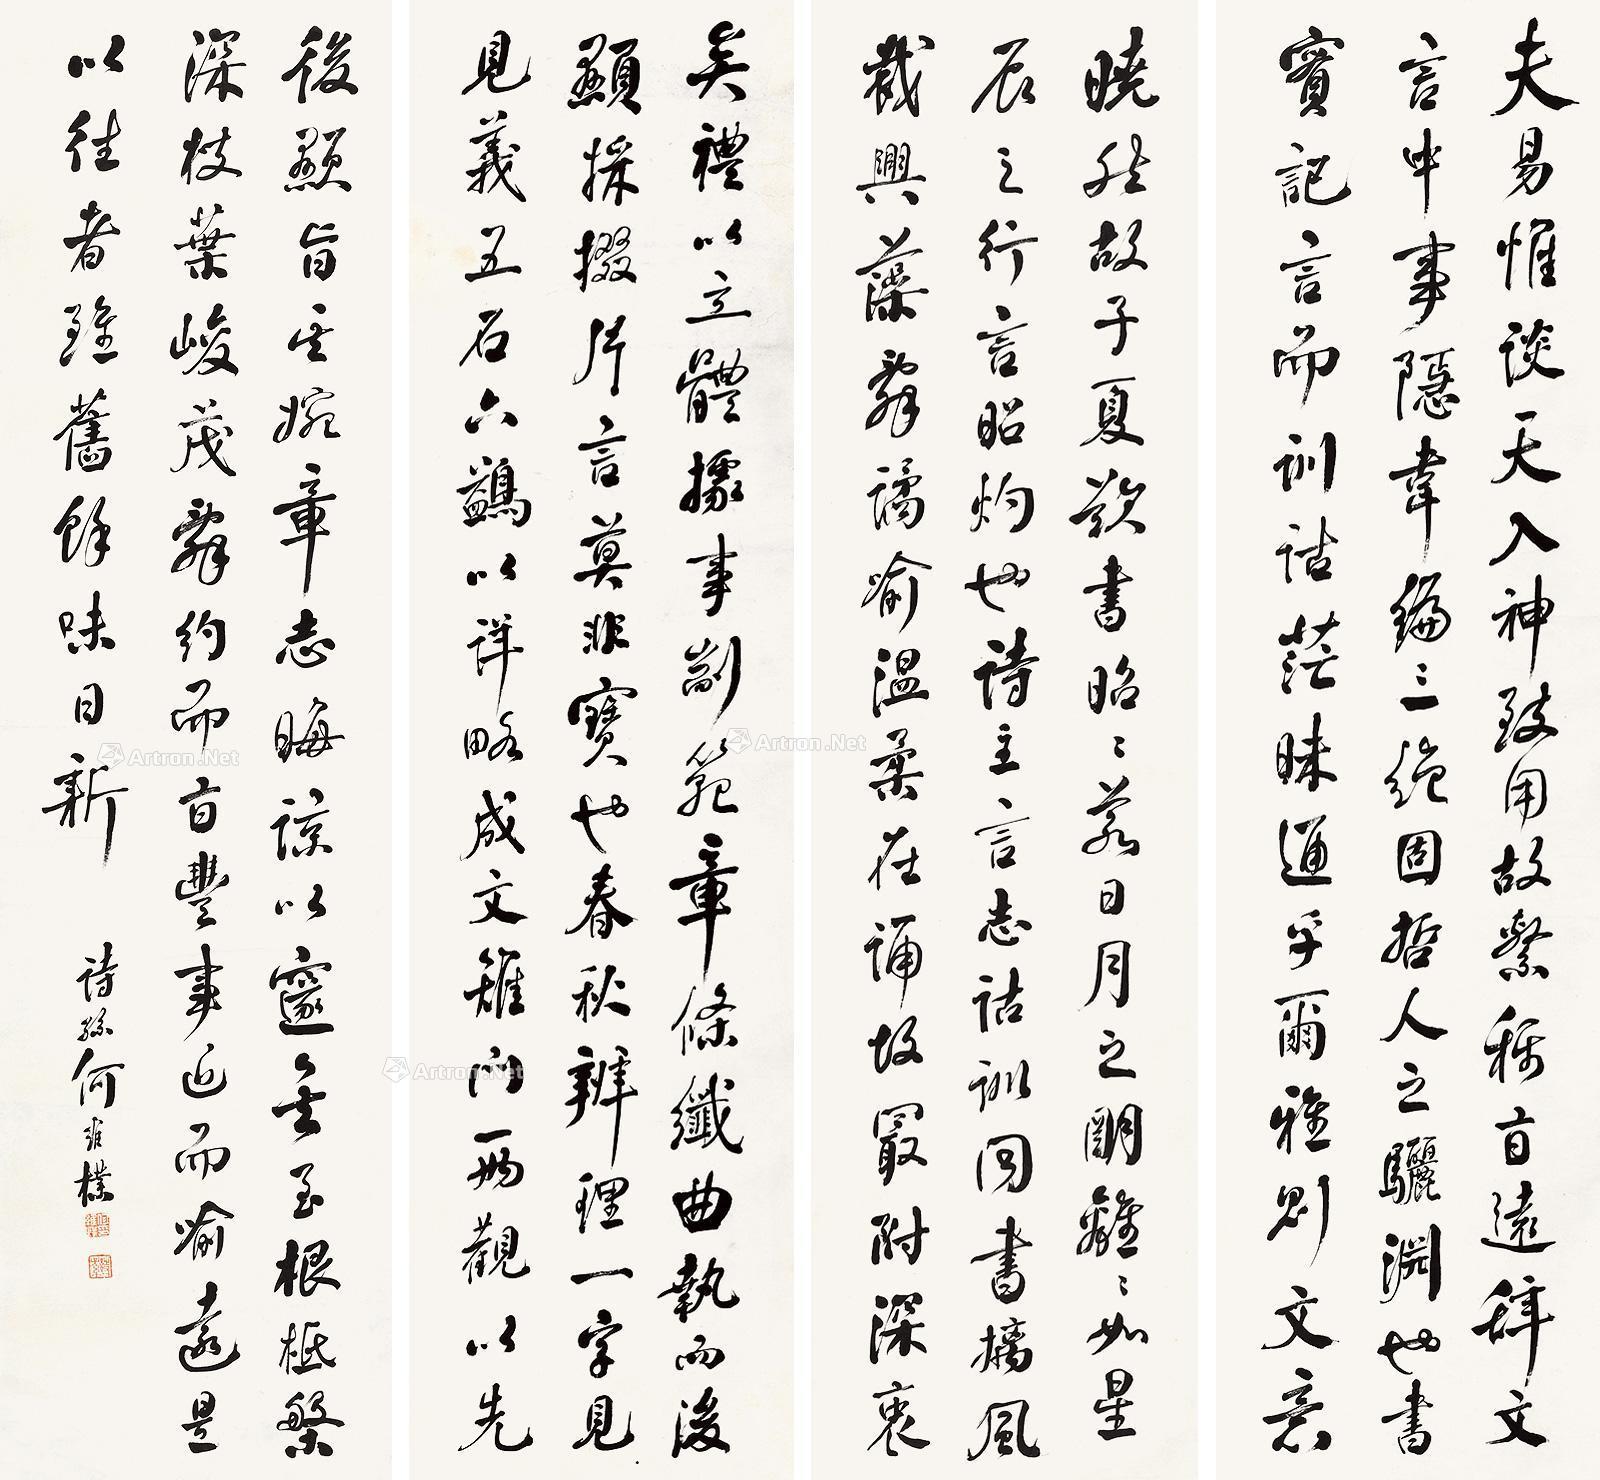 夫易惟談天入神致用故繫稱旨遠辭文
言中事隱韋編三絕固哲人之驪淵也書
實記言而訓詁茫昧通乎爾雅則文意
曉然故子夏歎書昭〻若日月之明離〻如星
辰之行言昭灼也詩主言志詁訓同書摛風
裁興藻辭譎喻溫柔在誦故最附深衷
矣禮以立體據事剬範章條纖曲執而後
顯採掇片言莫非寶也春秋辨理一字見
見義五石六鷁以詳略成文雉門兩觀以先
後顯旨其婉章志晦諒以邃矣至根柢槃
深枝葉峻茂辭約而旨豐事近而喻遠是
以往者雖舊餘味日新
詩孫何維樸
Artron.Net
Artron.Net
Artron.Net